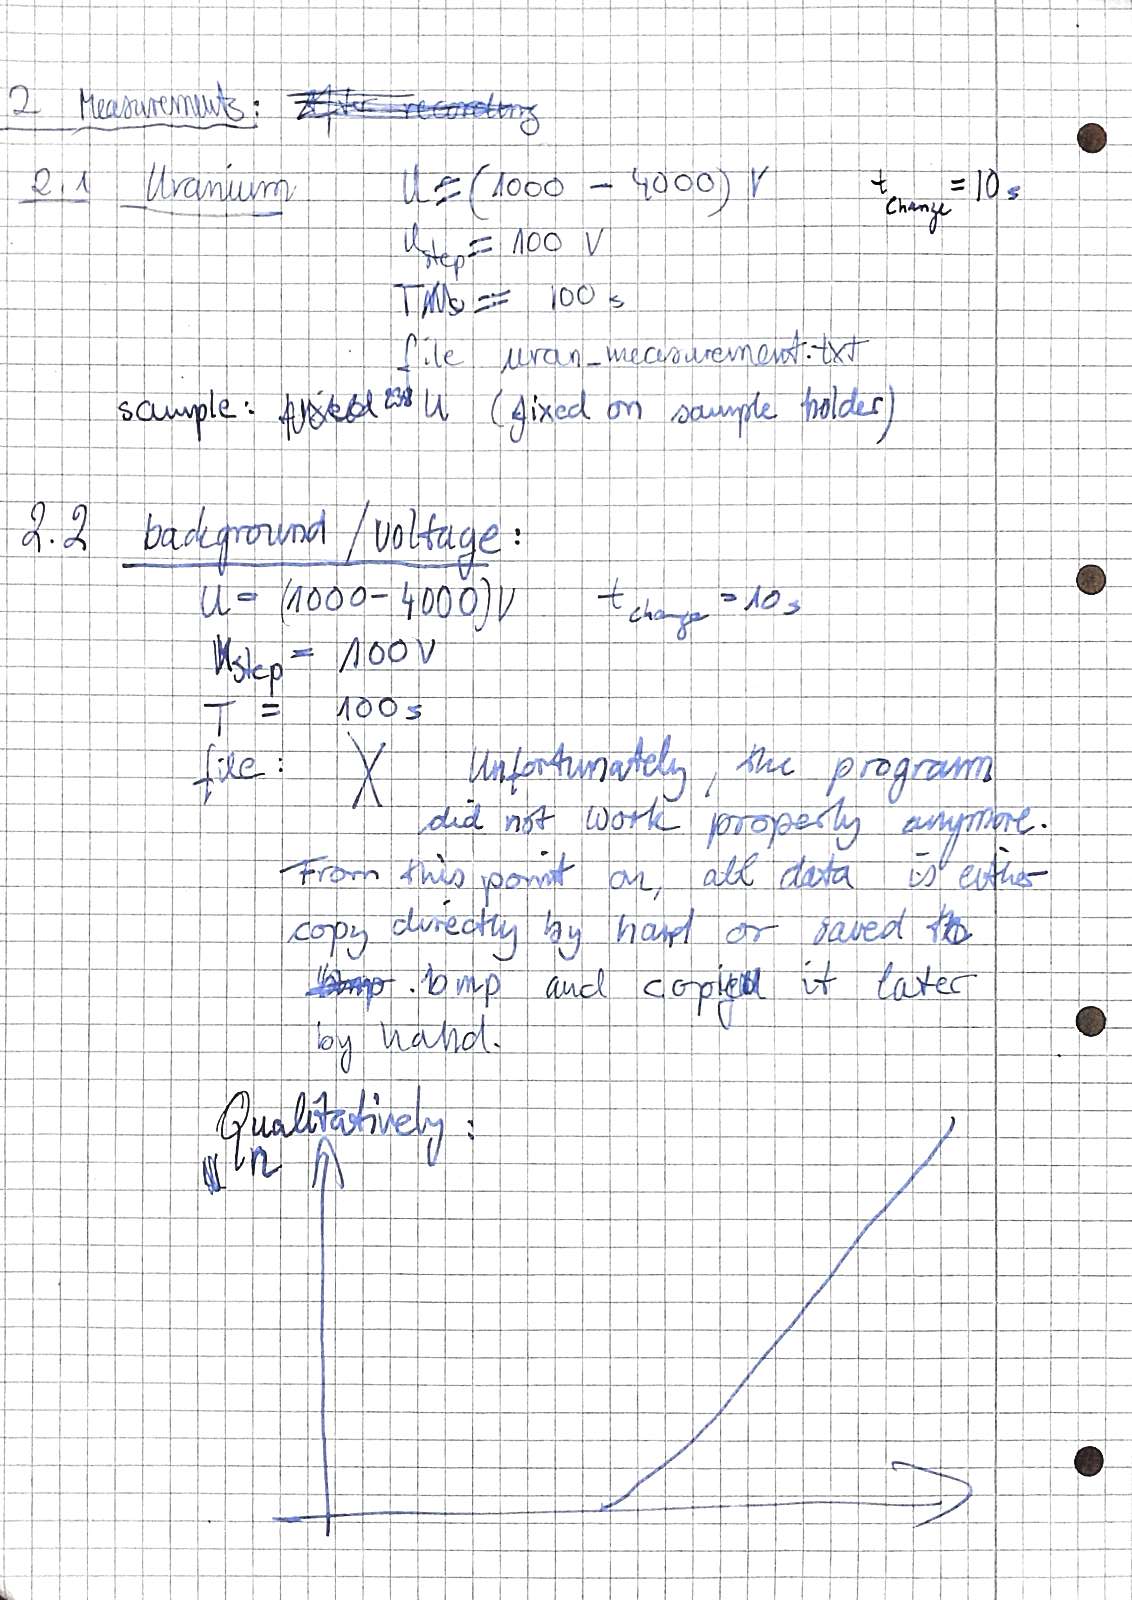 2 Measurements:
2.1 Uranium U = (1000 - 4000) V t_change = 10 s
U_step = 100 V
= 100 s
file uran_measurement.txt
sample: ²³⁸U (fixed on sample holder)
2.2 background / voltage:
U = (1000 - 4000) V t_change = 10 s
U_step = 100 V
T = 100 s
file: X Unfortunately, the program
did not work properly anymore.
From this point on, all data is either
copy directly by hand or saved to
.bmp and copied it later
by hand.
Qualitatively:
n